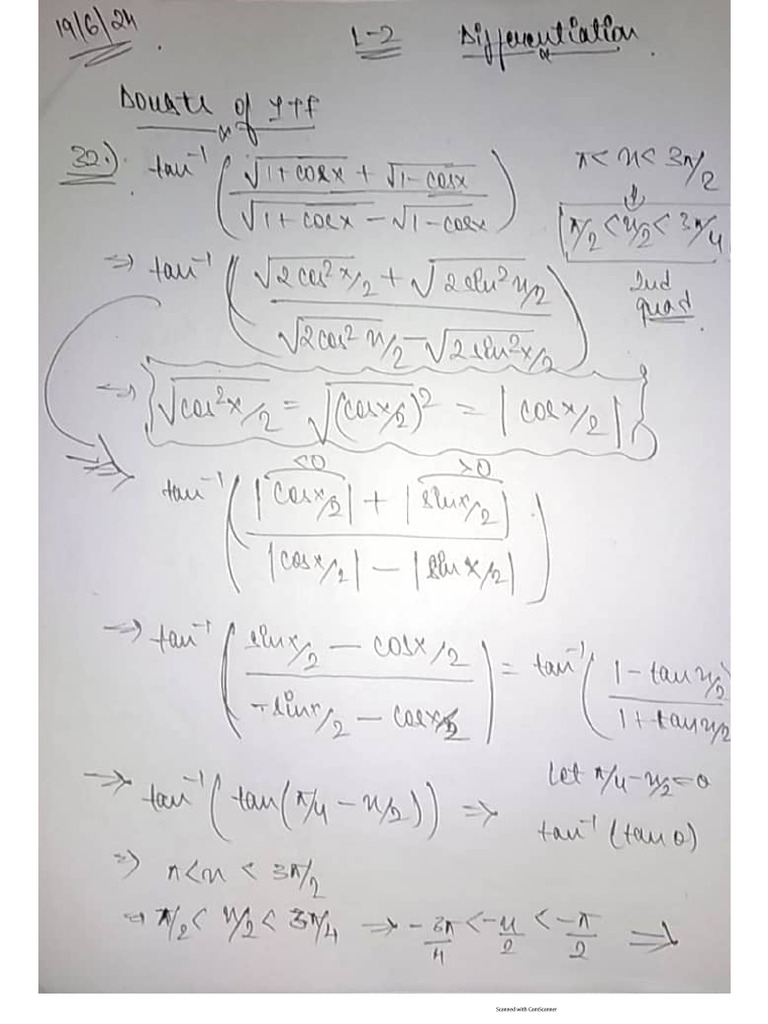 19/6/24
L-2 Differentiation
Doubts of ITF
32.) tan⁻¹ ( (√1+cosx + √1-cosx) / (√1+cosx - √1-cosx) ) π < x < 3π/2
π/2 < x/2 < 3π/4
2nd quad.
⇒ tan⁻¹ ( (√2cos²x/2 + √2sin²x/2) / (√2cos²x/2 - √2sin²x/2) )
⇒ { √cos²x/2 = √(cosx/2)² = |cosx/2| }
<0 >0
⇒ tan⁻¹ ( (|cosx/2| + |sinx/2|) / (|cosx/2| - |sinx/2|) )
⇒ tan⁻¹ ( (sinx/2 - cosx/2) / (-sinx/2 - cosx/2) ) = tan⁻¹ ( (1 - tanx/2) / (1 + tanx/2)
⇒ tan⁻¹ ( tan(π/4 - x/2) ) ⇒ Let π/4 - x/2 = θ
tan⁻¹ (tan θ)
⇒ π < x < 3π/2
⇒ π/2 < x/2 < 3π/4 ⇒ -3π/4 < -x/2 < -π/2 ⇒
Scanned with CamScanner